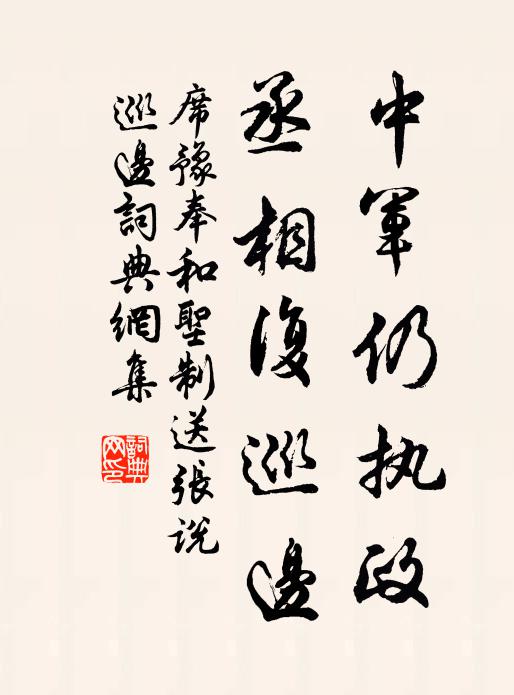 中軍仍执政
丞相復巡邊
席豫奉和聖制送張说
巡邊詞典網集
詞典网印